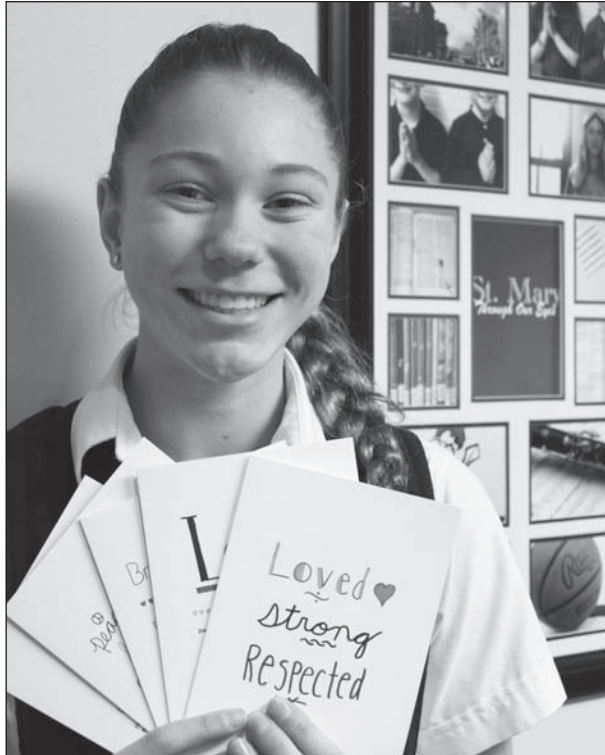 St. Mary
Through Our Eyes
L
Loved
strong
Respected